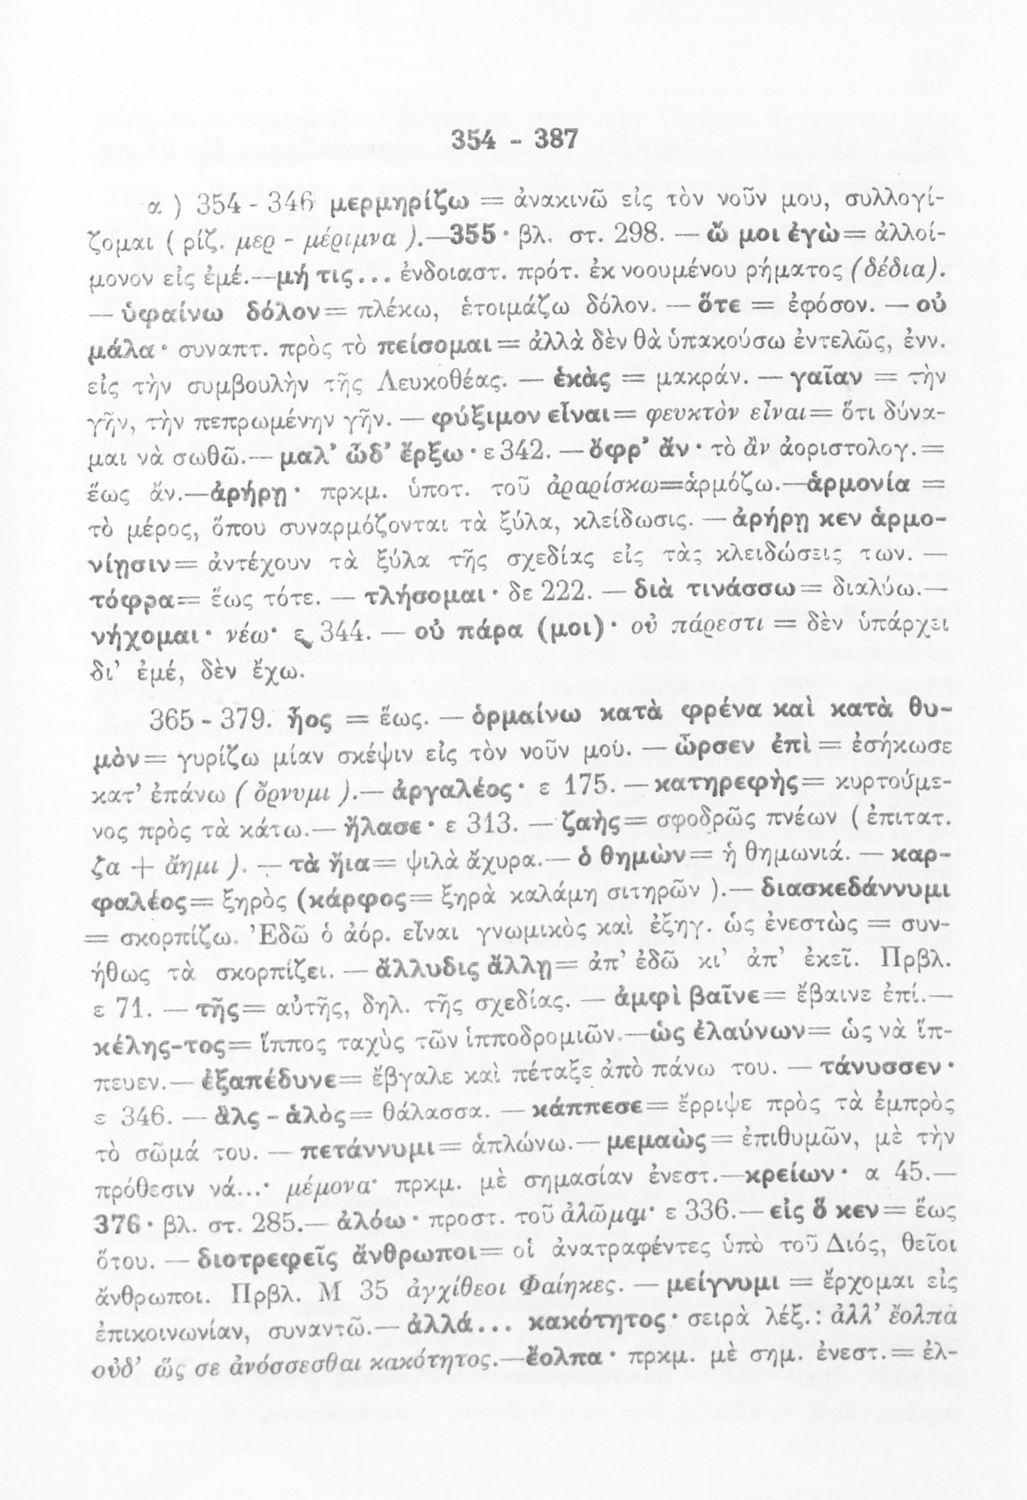 354 - 387
α ) 354 - 346 μερμηρίζω = ἀνακινῶ εἰς τὸν νοῦν μου, συλλογί-
ζομαι ( ρίζ. μερ - μέριμνα ).—355 · βλ. στ. 298. — ὤ μοι ἐγὼ= ἀλλοί-
μονον εἰς ἐμέ.—μή τις... ἐνδοιαστ. πρότ. ἐκ νοουμένου ρήματος (δέδια).
— ὑφαίνω δόλον= πλέκω, ἑτοιμάζω δόλον. — ὅτε = ἐφόσον. — οὐ
μάλα · συναπτ. πρὸς τὸ πείσομαι = ἀλλὰ δὲν θὰ ὑπακούσω ἐντελῶς, ἐνν.
εἰς τὴν συμβουλὴν τῆς Λευκοθέας. — ἑκὰς = μακράν. — γαῖαν = τὴν
γῆν, τὴν πεπρωμένην γῆν. — φύξιμον εἶναι= φευκτὸν εἶναι= ὅτι δύνα-
μαι νὰ σωθῶ.— μαλ' ὧδ' ἔρξω · ε 342. — ὄφρ' ἄν · τὸ ἂν ἀοριστολογ. =
ἕως ἄν.—ἀρήρῃ · πρκμ. ὑποτ. τοῦ ἀραρίσκω=ἁρμόζω.—ἁρμονία =
τὸ μέρος, ὅπου συναρμόζονται τὰ ξύλα, κλείδωσις. — ἀρήρῃ κεν ἁρμο-
νίῃσιν= ἀντέχουν τὰ ξύλα τῆς σχεδίας εἰς τὰς κλειδώσεις των. —
τόφρα= ἕως τότε. — τλήσομαι · δε 222. — διὰ τινάσσω= διαλύω.—
νήχομαι · νέω· ε, 344. — οὐ πάρα (μοι) · οὐ πάρεστι = δὲν ὑπάρχει
δι' ἐμέ, δὲν ἔχω.
365 - 379. ἧος = ἕως. — ὁρμαίνω κατὰ φρένα καὶ κατὰ θυ-
μὸν= γυρίζω μίαν σκέψιν εἰς τὸν νοῦν μοῦ. — ὦρσεν ἐπὶ = ἐσήκωσε
κατ' ἐπάνω ( ὄρνυμι ).— ἀργαλέος · ε 175. — κατηρεφὴς= κυρτούμε-
νος πρὸς τὰ κάτω.— ἤλασε · ε 313. — ζαὴς= σφοδρῶς πνέων ( ἐπιτατ.
ζα + ἄημι ). — τὰ ἤια= ψιλὰ ἄχυρα.— ὁ θημὼν= ἡ θημωνιά. — καρ-
φαλέος= ξηρὸς (κάρφος= ξηρὰ καλάμη σιτηρῶν ).— διασκεδάννυμι
= σκορπίζω. Ἐδῶ ὁ ἀόρ. εἶναι γνωμικὸς καὶ ἐξηγ. ὡς ἐνεστὼς = συν-
ήθως τὰ σκορπίζει. — ἄλλυδις ἄλλῃ= ἀπ' ἐδῶ κι' ἀπ' ἐκεῖ. Πρβλ.
ε 71. — τῆς= αὐτῆς, δηλ. τῆς σχεδίας. — ἀμφὶ βαῖνε= ἔβαινε ἐπί.—
κέλης-τος= ἵππος ταχὺς τῶν ἱπποδρομιῶν.—ὡς ἐλαύνων= ὡς νὰ ἵπ-
πευεν.— ἐξαπέδυνε= ἔβγαλε καὶ πέταξε ἀπὸ πάνω του. — τάνυσσεν ·
ε 346. — ἅλς - ἁλὸς= θάλασσα. — κάππεσε= ἔρριψε πρὸς τὰ ἐμπρὸς
τὸ σῶμά του. — πετάννυμι= ἁπλώνω.— μεμαὼς= ἐπιθυμῶν, μὲ τὴν
πρόθεσιν νά...· μέμονα· πρκμ. μὲ σημασίαν ἐνεστ.—κρείων · α 45.—
376 · βλ. στ. 285.— ἀλόω · προστ. τοῦ ἀλῶμαι· ε 336.— εἰς ὅ κεν= ἕως
ὅτου. — διοτρεφεῖς ἄνθρωποι= οἱ ἀνατραφέντες ὑπὸ τοῦ Διός, θεῖοι
ἄνθρωποι. Πρβλ. Μ 35 ἀγχίθεοι Φαίηκες. — μείγνυμι = ἔρχομαι εἰς
ἐπικοινωνίαν, συναντῶ.— ἀλλά... κακότητος · σειρὰ λέξ. : ἀλλ' ἔολπα
οὐδ' ὥς σε ἀνόσσεσθαι κακότητος.—ἔολπα · πρκμ. μὲ σημ. ἐνεστ.= ἐλ-